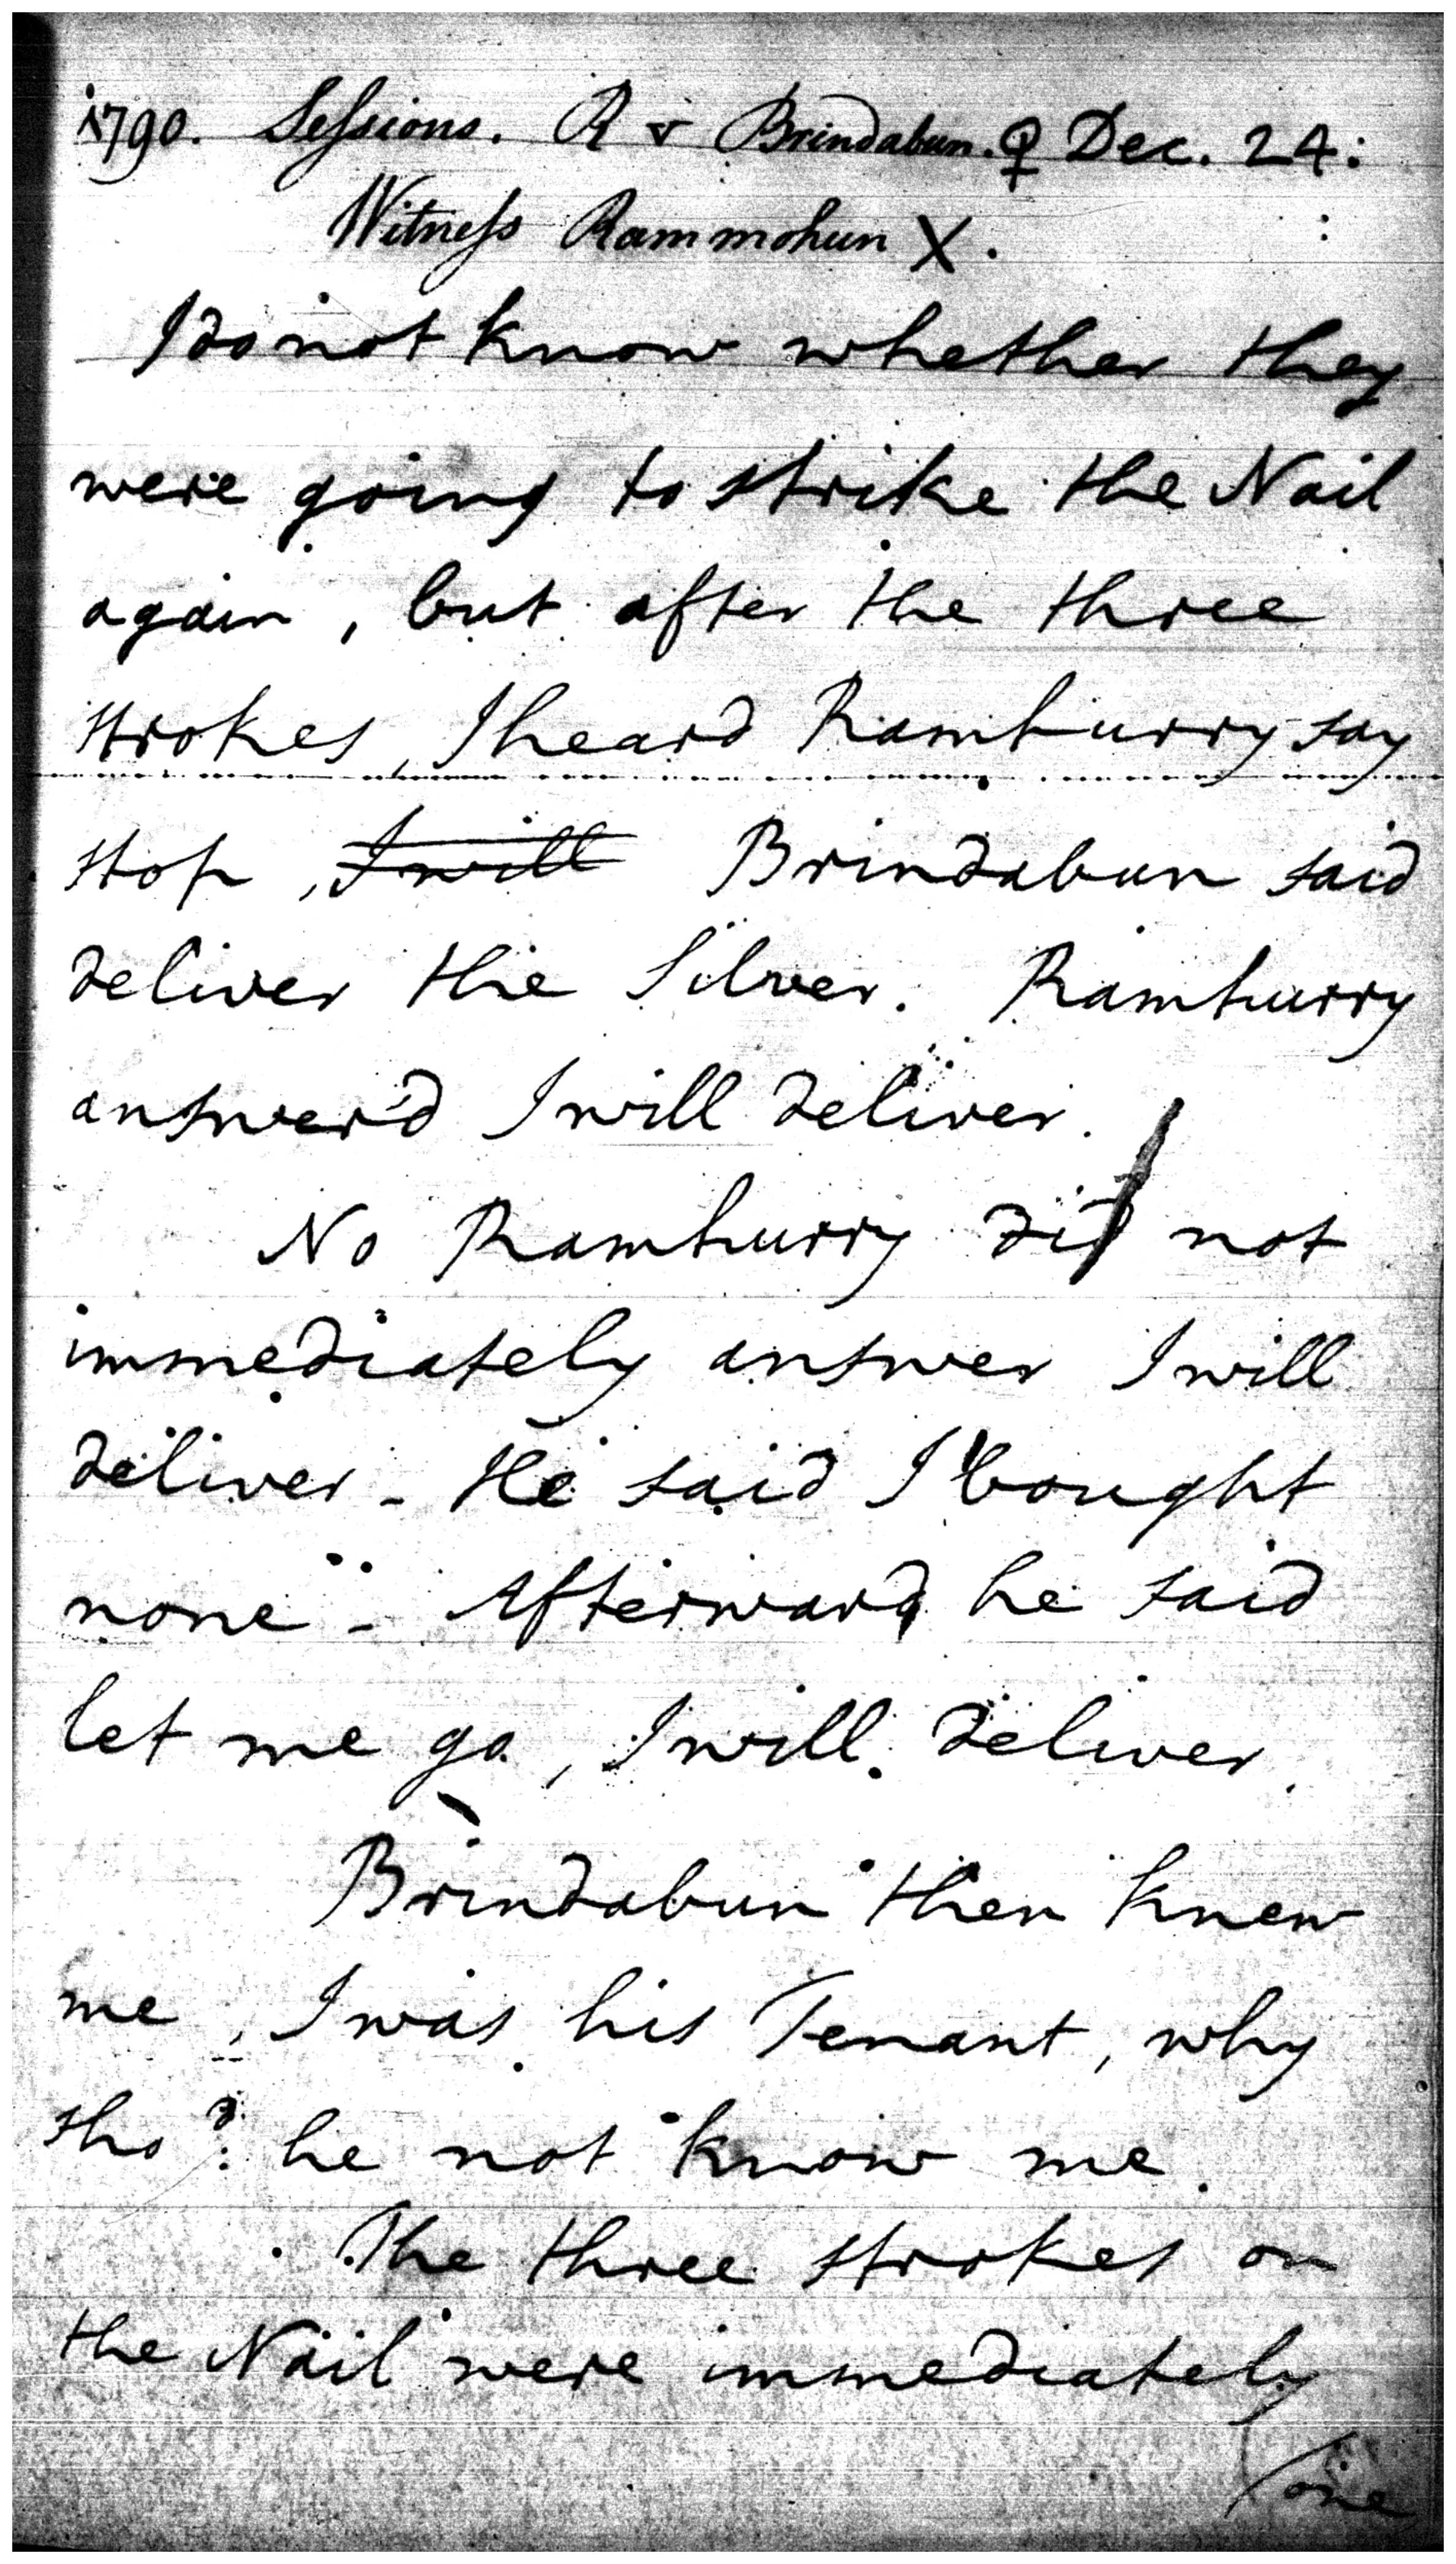 1790. Sessions. R v Brindabun. ♀ Dec. 24:
Witness Rammohun X.
I do not know whether they
were going to strike the Nail
again, but after the three
strokes, I heard Ramhurry say
stop, I will Brindabun said
deliver the Silver. Ramhurry
answer'd I will deliver.
No Ramhurry did not
immediately answer I will
deliver - He said I bought
none - Afterward he said
let me go, I will deliver.
Brindabun then knew
me, I was his Tenant, why
sho.d he not know me.
The three strokes on
the Nail were immediately
one